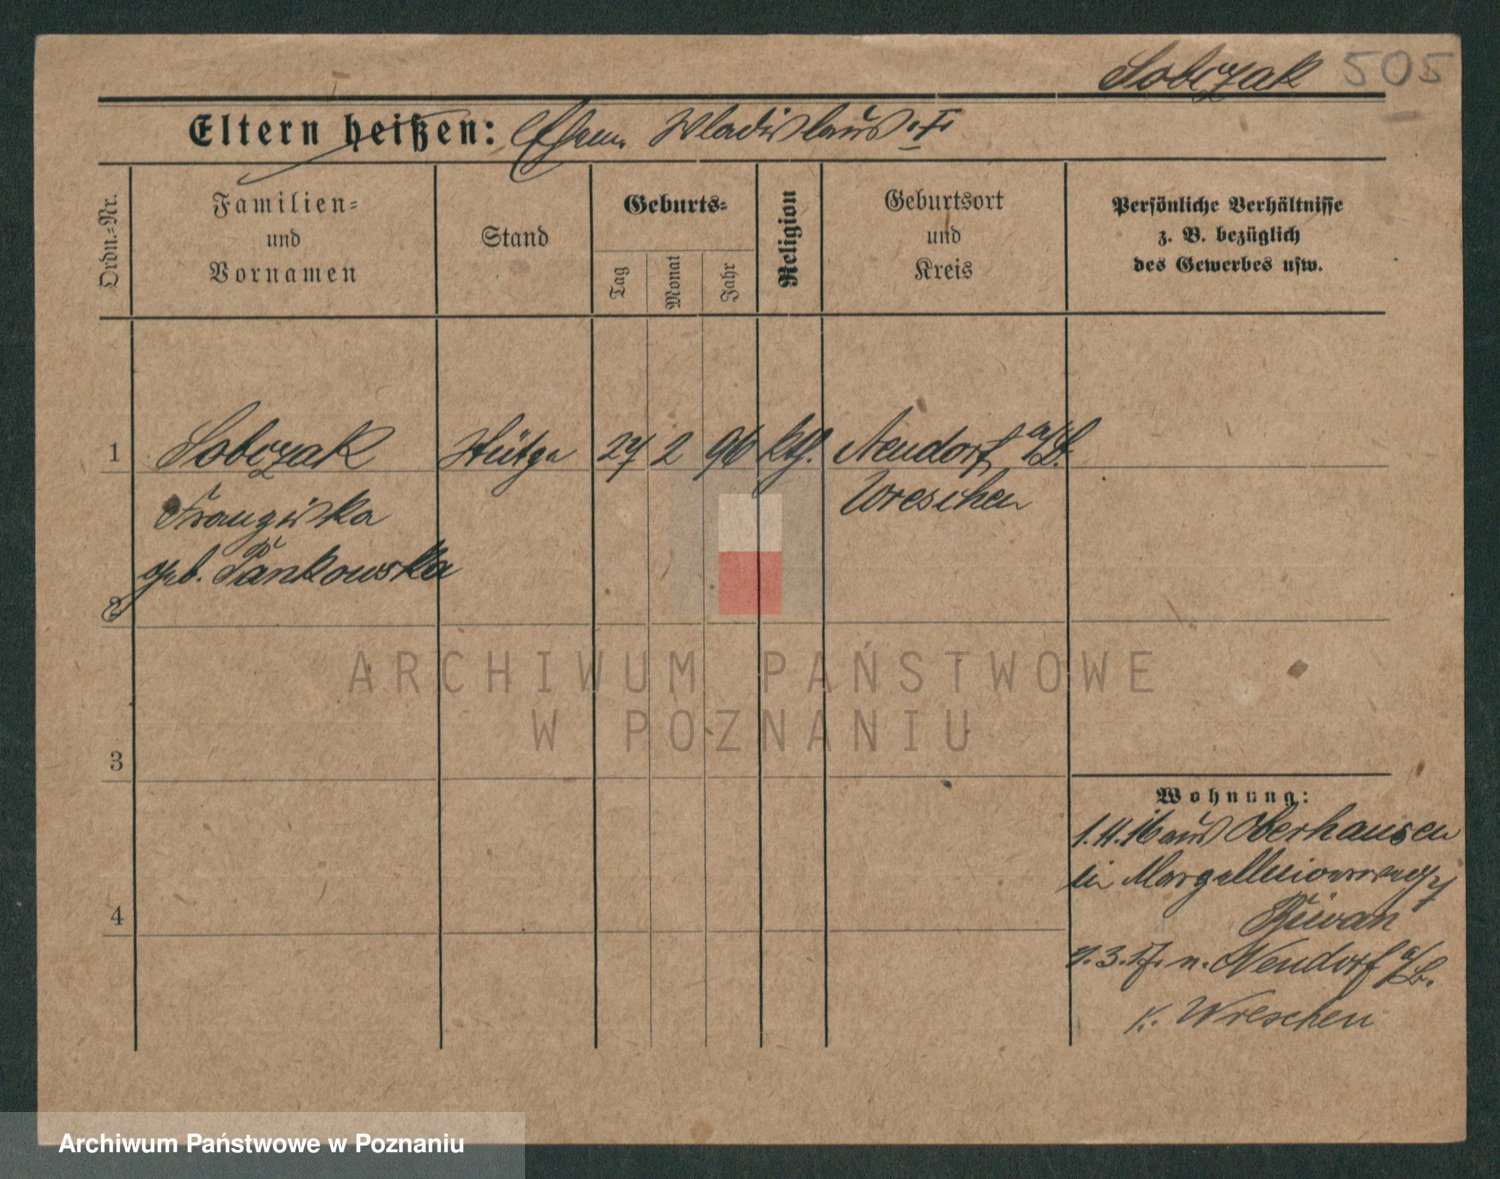 Sobczak 505
Eltern heißen: Ehem. Wladislaus
Ordn.-Nr.
Familien-
und
Vornamen
Stand
Geburts-
Tag
Monat
Jahr
Religion
Geburtsort
und
Kreis
Persönliche Verhältnisse
z. B. bezüglich
des Gewerbes usw.
1 Sobczak 27 2 96 kth. Neudorf a/B.
Franziska Wreschen
geb. Pankowska
2
3
4
Wohnung:
1.11.16 aus Oberhausen
Neudorf a/B.
K. Wreschen
ARCHIWUM PAŃSTWOWE
W POZNANIU
Archiwum Państwowe w Poznaniu